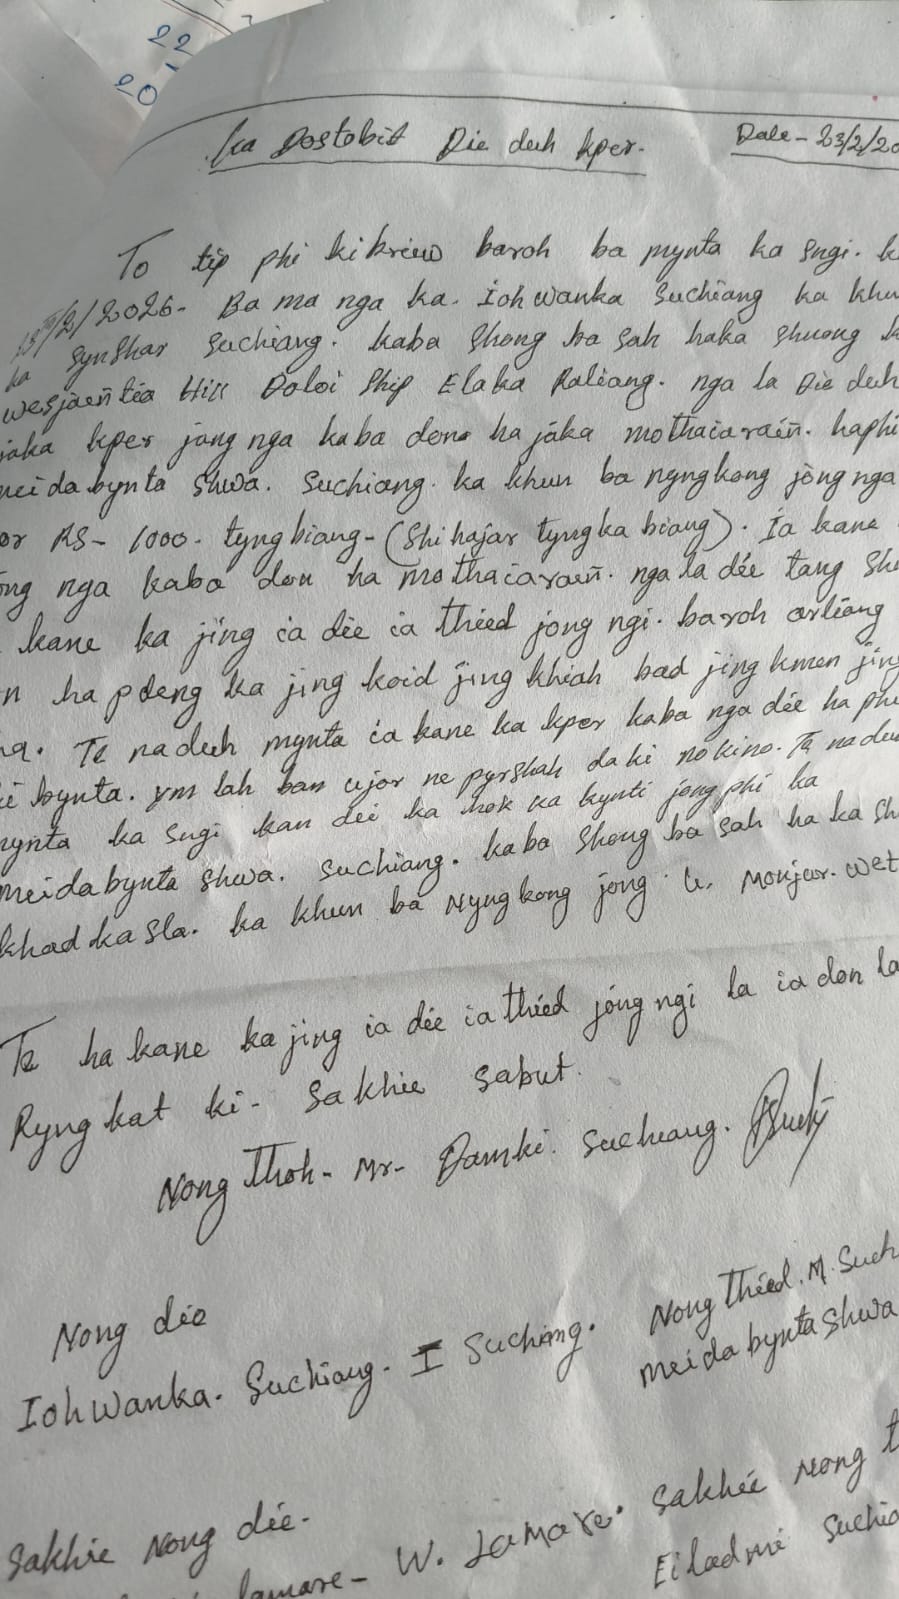 22
20
Ka Dostobit Die duh kper.
Date - 23/2/20
To tip phi ki briew baroh ba mynta ka sngi. k
23/2/2026. Ba ma nga ka. Ioh wanka Suchiang ka khu
ka Synshar Suchiang. kaba shong ba sah haka shnong k
wesjaeñtia Hill Doloi Ship Elaka Raliang. nga la Die duh
jaka kper jong nga kaba don ha jaka mothaiaraiñ. haphi
meidabynta Shwa. Suchiang. ka khun ba nyngkong jong nga
or RS- 1000. tyngbiang-(Shi hajar tyngka biang). Ia kane
ong nga kaba don ha mothaiaraiñ. nga la die tang Sh
kane ka jing ia die ia thied jong ngi. baroh arliang
n ha pdeng ka jing koid jing khiah bad jing kmen jing
Te naduh mynta ia kane ka kper kaba nga die ha phi
bynta. ym lah ban ujor ne pyrshah da ki nokino. Te nadu
mynta ka sngi kan dei ka hok ka kynti jong phi ka
meidabynta shwa. suchiang. kaba shong ba sah ha ka sh
khadkasla. ka khun ba Nyngkong jong U. Monjur. wet
Te ha kane ka jing ia die ia thied jong ngi la ia don la
Ryngkat ki- Sakhie sabut.
Nong Thoh- Mr- Damki. Suchiang.
Nong die
Nong Thied. M. Such
Iohwanka. Suchiang. I Suchiang.
meidabynta Shwa
Sakhie Nong die.
Sakhie Nong t
lamare- W. Lamare.
Eiladmi Suchia